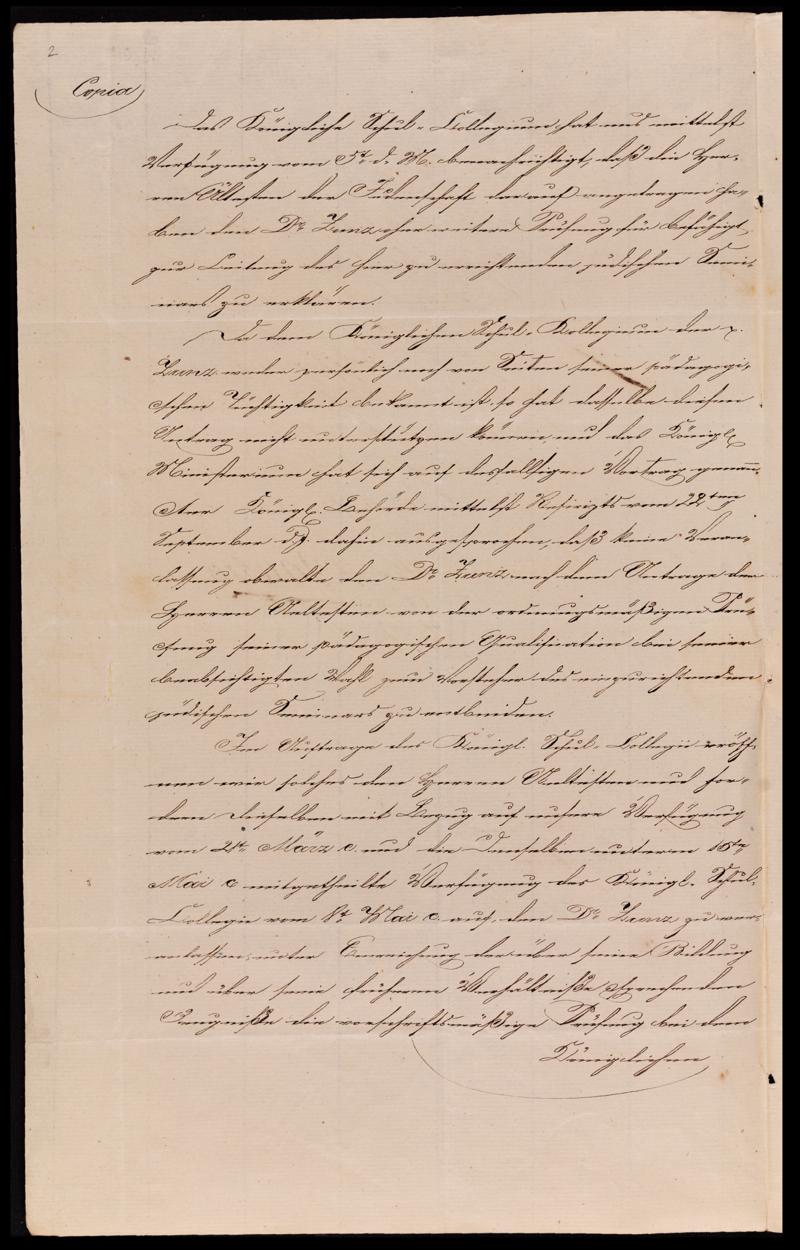 2
Copia
Das Königliche Schul-Collegium hat uns mittelst
Verfügung vom 5t. d. M. benachrichtigt, daß die Her-
ren Ältesten der Judenschaft darauf angetragen ha-
ben den Dr. Zunz ohne weitere Prüfung für befähigt
zur Leitung des hier zu errichtenden jüdischen Semi-
nars zu erklären.
Da dem Königlichen Schul-Kollegium der p.
Zunz weder persönlich noch von Seiten seiner pädagogi-
schen Tüchtigkeit bekannt ist, so hat dasselbe diesen
Antrag nicht unterstützen können und das Königl.
Ministerium hat sich auf desfallsigen Vortrag genann-
ter Königl. Behörde mittelst Rescripts vom 22ten
September d. J. dahin ausgesprochen, daß keine Veran-
lassung obwalte den Dr. Zunz nach dem Antrage der
Herren Aeltesten von der ordnungsmäßigen Prü-
fung seiner pädagogischen Qualification bei seiner
beabsichtigten Wahl zum Vorsteher des einzurichtenden
jüdischen Seminars zu entbinden.
Im Auftrage des Königl. Schul-Collegii eröff-
nen wir solches den Herren Aeltesten und for-
dern dieselben mit Bezug auf unsere Verfügung
vom 21t. März c. und die Denselben unterm 16ten
Mai c mitgetheilte Verfügung des Königl. Schul-
Collegii vom 8t. Mai c. auf, den Dr. Zunz zu ver-
anlassen, unter Einreichung der über seine Bildung
und über seine früheren Verhältniße sprechenden
Zeugniße die vorschriftsmäßige Prüfung bei dem
Königlichen